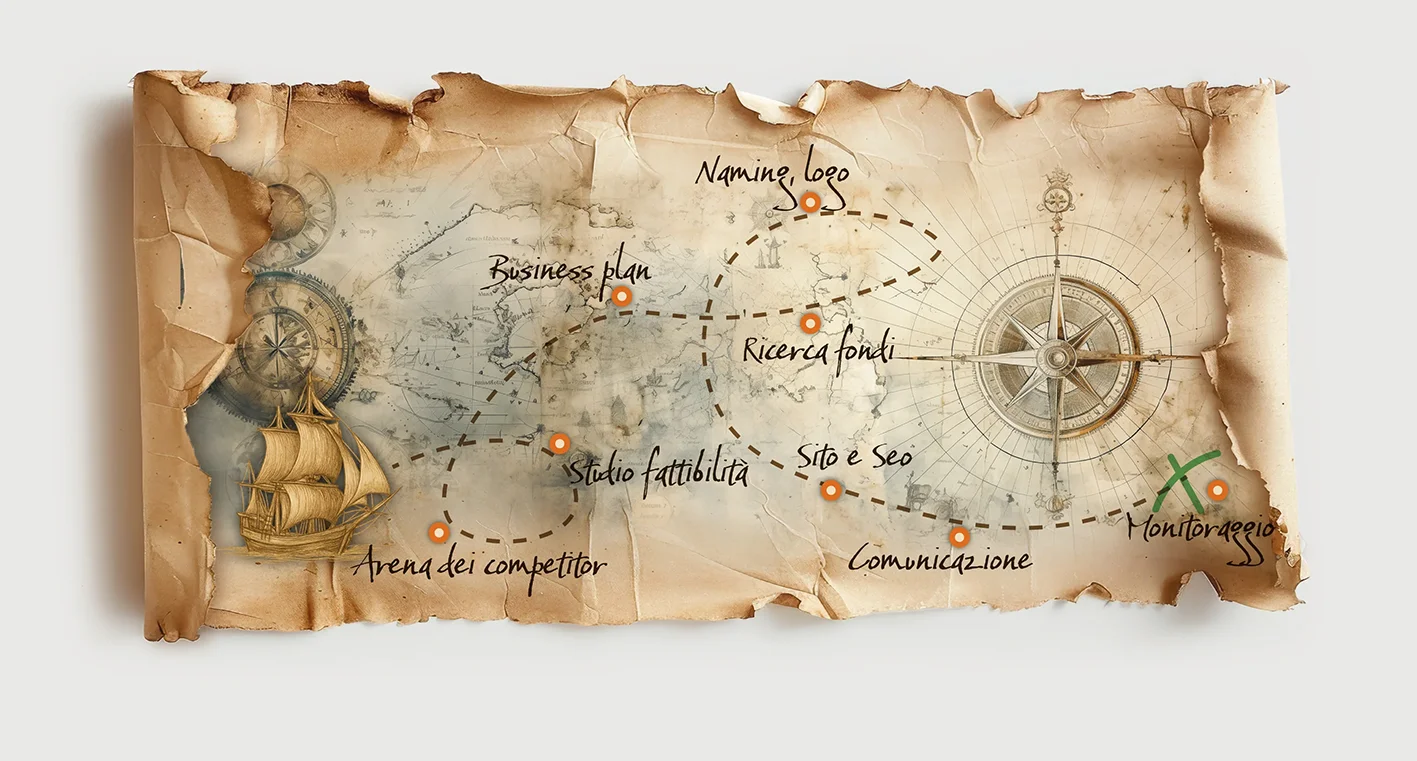 Naming, logo
Business plan
Ricerca fondi
Sito e Seo
Studio fattibilità
Monitoraggio
Arena dei competitor
Comunicazione